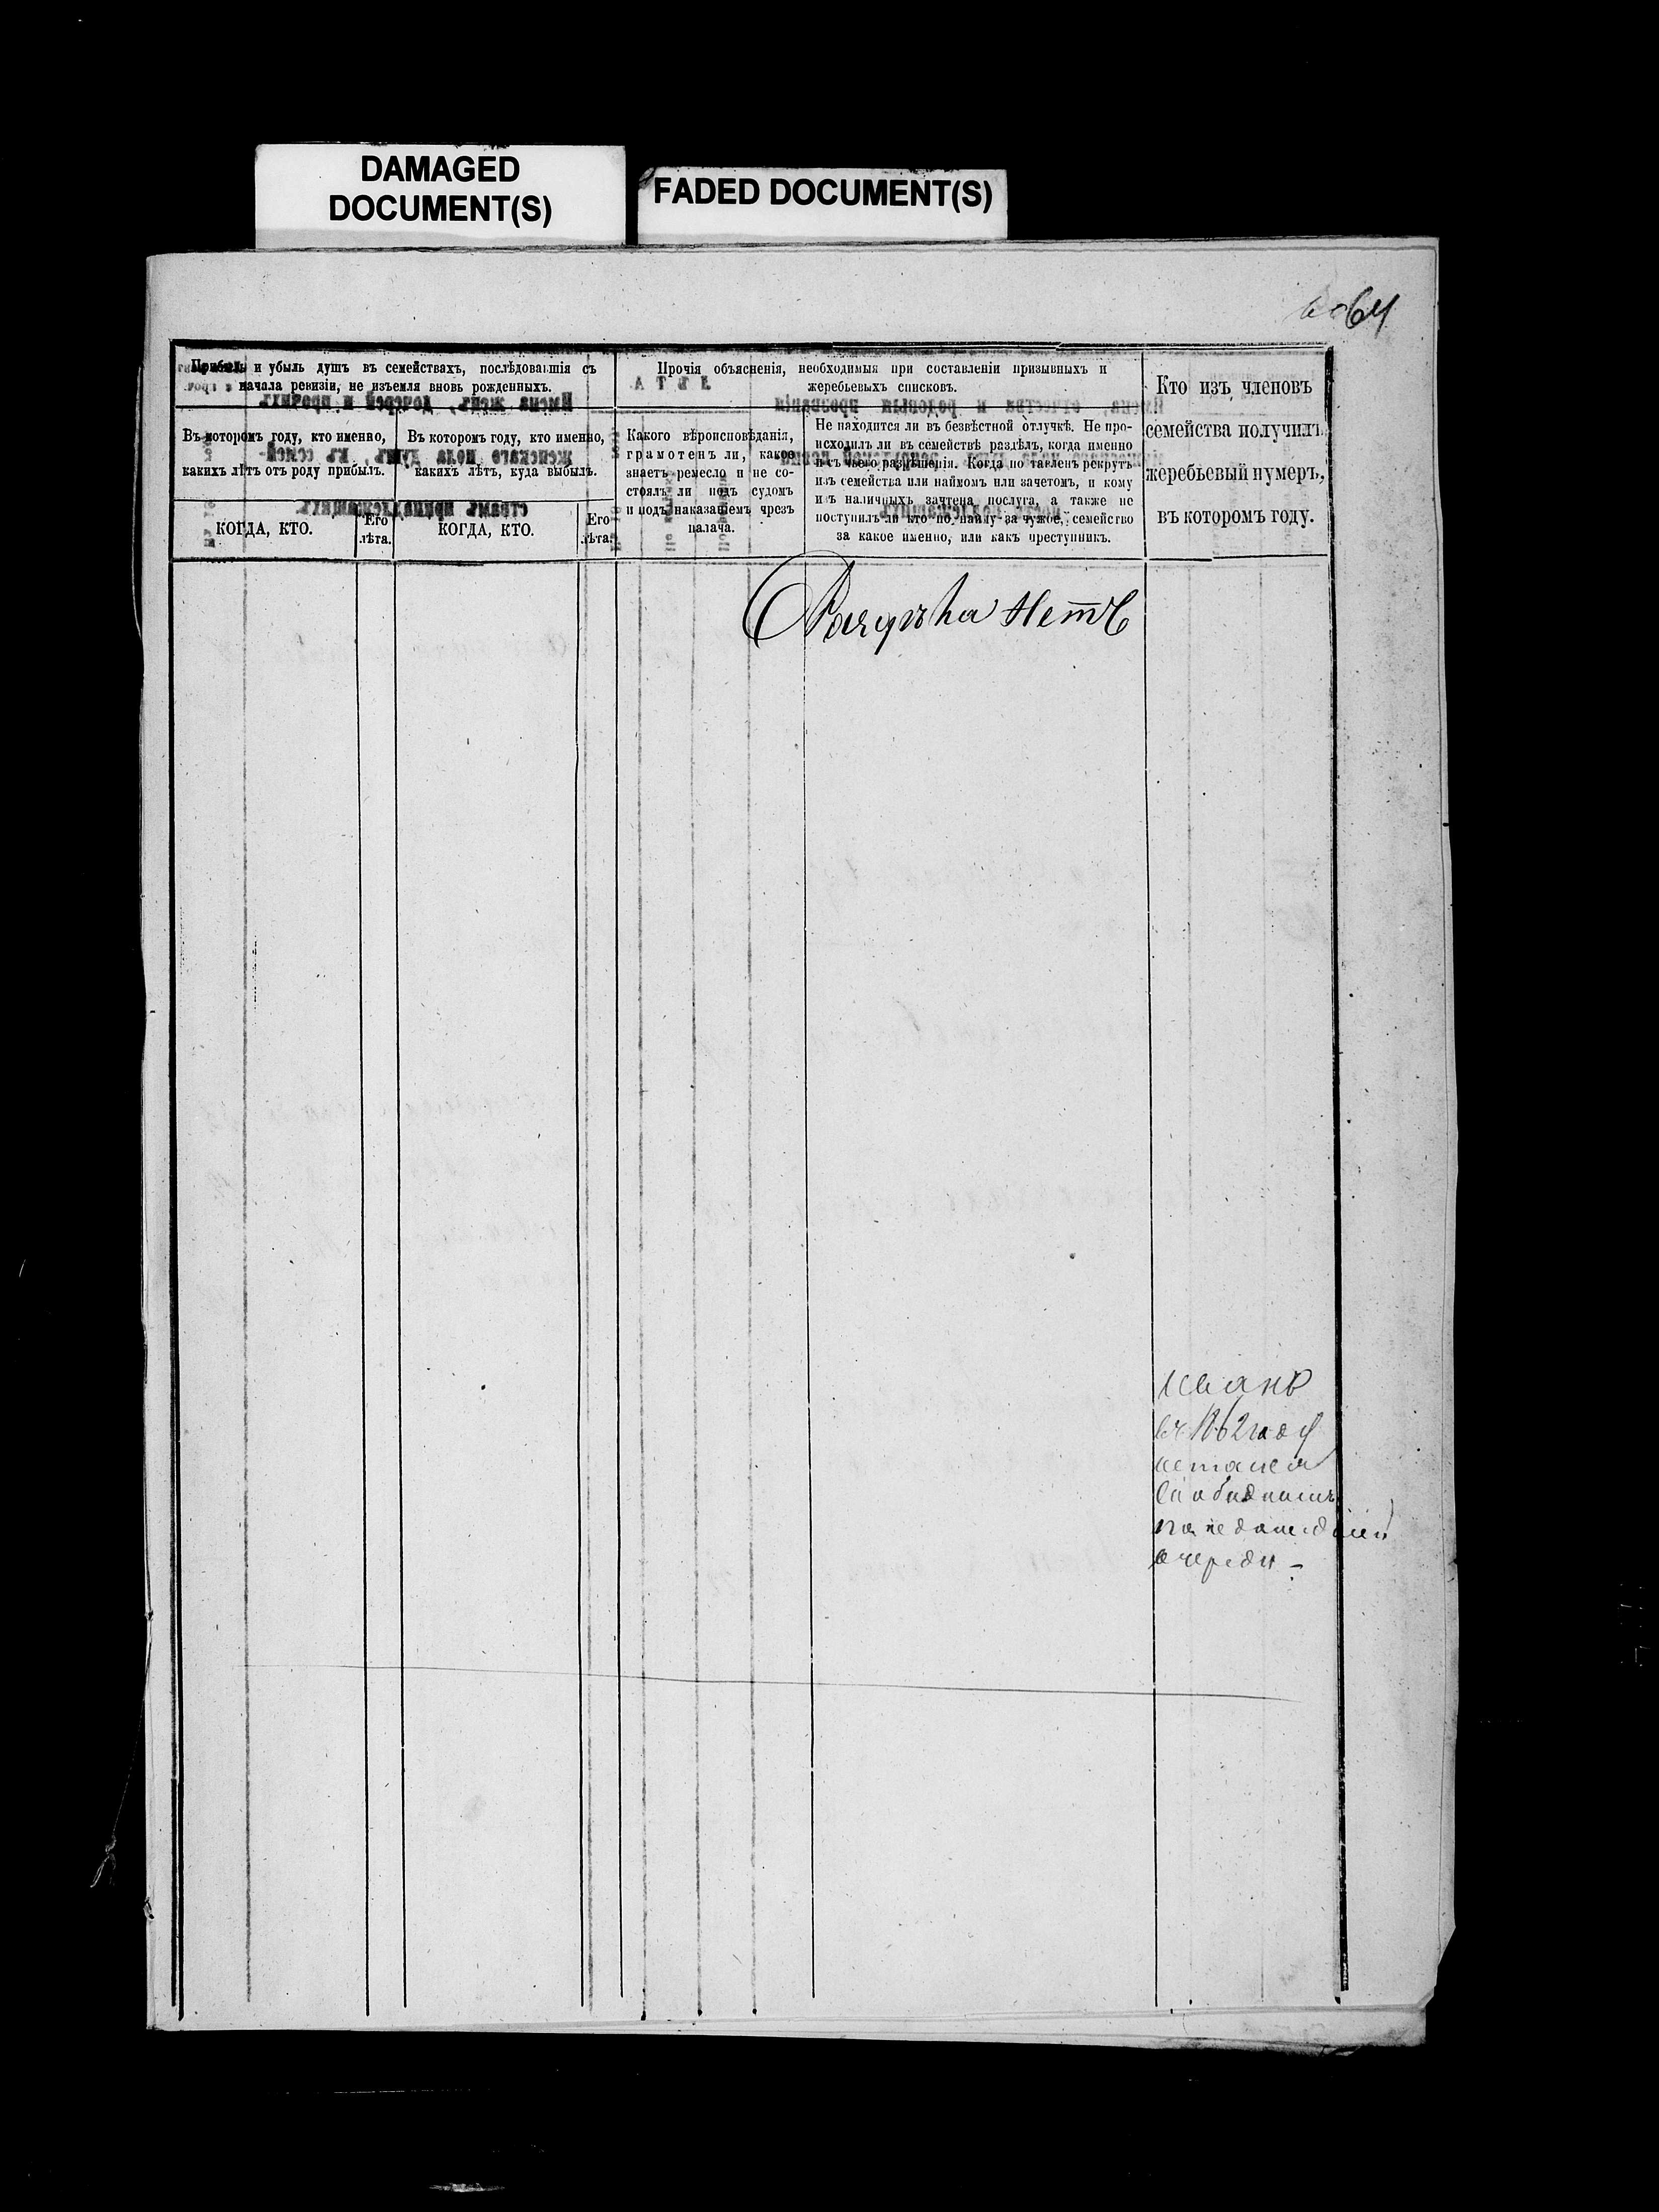 DAMAGED
DOCUMENT(S)
FADED DOCUMENT(S)
64
Прибыль и убыль душъ въ семействахъ, послѣдовавшія съ
начала ревизіи, не изъемля вновь рожденныхъ.
Прочія объясненія, необходимыя при составленіи призывныхъ и
жеребьевыхъ списковъ.
Кто изъ членовъ
семейства получилъ
жеребьевый нумеръ,
въ которомъ году.
Въ которомъ году, кто именно,
какихъ лѣтъ отъ роду прибылъ.
Въ которомъ году, кто именно,
какихъ лѣтъ, куда выбылъ.
Какого вѣроисповѣданія,
грамотенъ ли, какое
знаетъ ремесло и не со-
стоялъ ли подъ судомъ
и подъ наказаніемъ чрезъ
палача.
Не находится ли въ безвѣстной отлучкѣ. Не про-
исходилъ ли въ семействѣ раздѣлъ, когда именно
и съ чьего разрѣшенія. Когда поставленъ рекрутъ
изъ семейства или наймомъ или зачетомъ, и кому
изъ наличныхъ зачтена послуга, а также не
поступилъ ли кто по найму за чужое, семейство
за какое именно, или какъ преступникъ.
КОГДА, КТО.
Его
лѣта.
КОГДА, КТО.
Его
лѣта.
нетъ
Иванъ
въ 1862 году
остался
свободнымъ
по недошедшей
очереди -